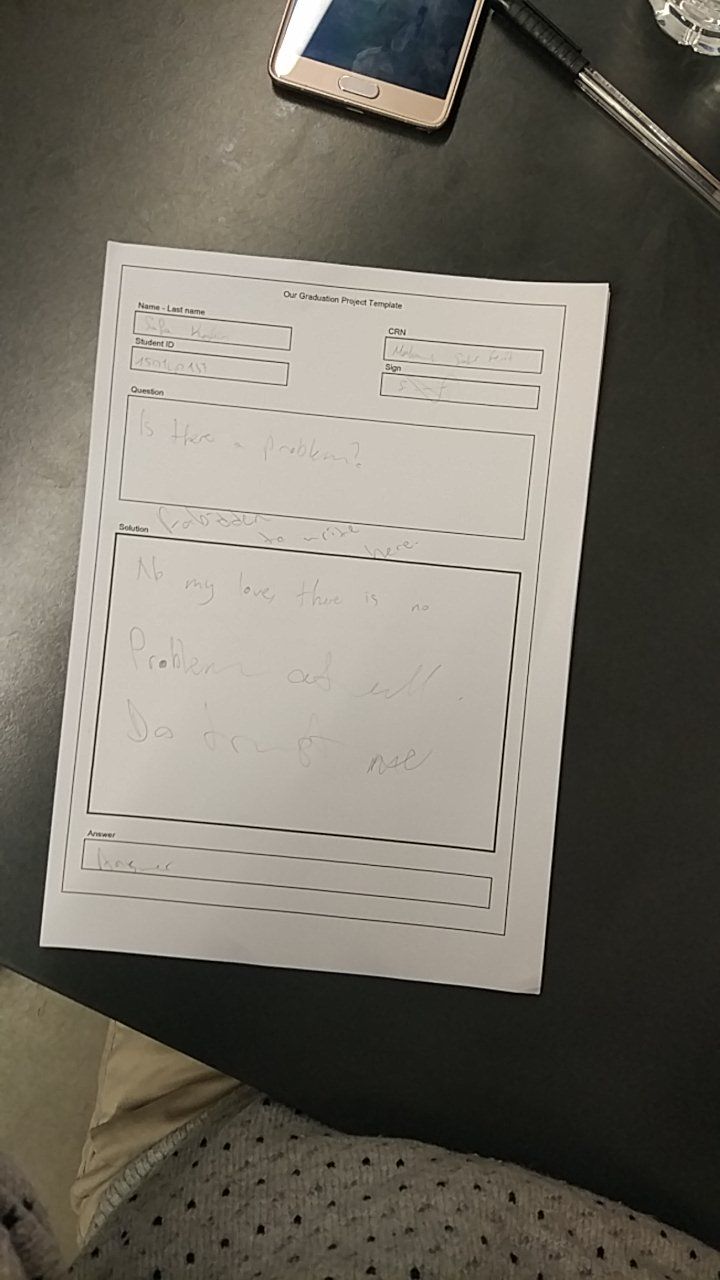 Our Graduation Project Template
Name - Last name
CRN
Student ID
Sign
Question
Is there a problem?
to write
here.
Solution
No my love, there is no
Problem at all.
Do trust me
Answer